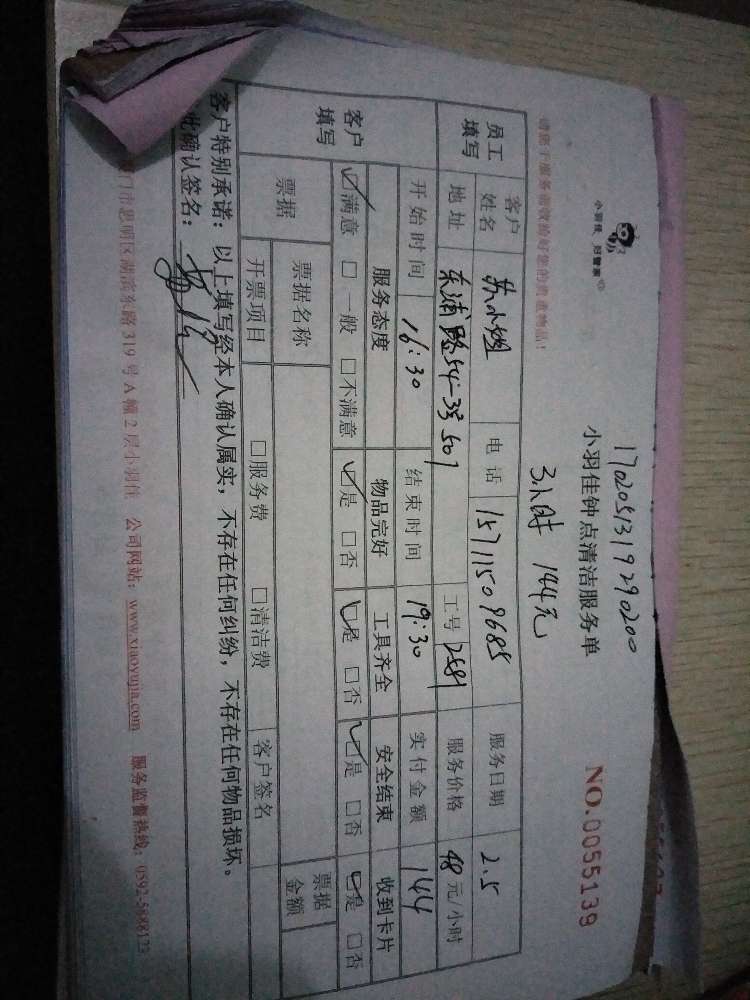 1702051319290200
小羽佳 好管家
小羽佳钟点清洁服务单
NO.0055139
3小时 144元
请您于服务前收捡好您的贵重物品!
员工填写
客户姓名 苏小姐 电话 15711509685 服务日期 2.5
地址 东浦路54-3号501 工号 2581 服务价格 48元/小时
开始时间 16:30 结束时间 19:30 实付金额 144
客户填写
服务态度 物品完好 工具齐全 安全结束 收到卡片
☑满意 □一般 □不满意 ☑是 □否 ☑是 □否 ☑是 □否 ☑是 □否
票据 票据名称 票据金额
开票项目 □服务费 □清洁费 客户签名
客户特别承诺:以上填写经本人确认属实,不存在任何纠纷,不存在任何物品损坏。
此确认签名:
门市思明区湖滨东路319号A幢2层小羽佳 公司网站:www.xiaoyujia.com 服务监督热线:0592-5888123